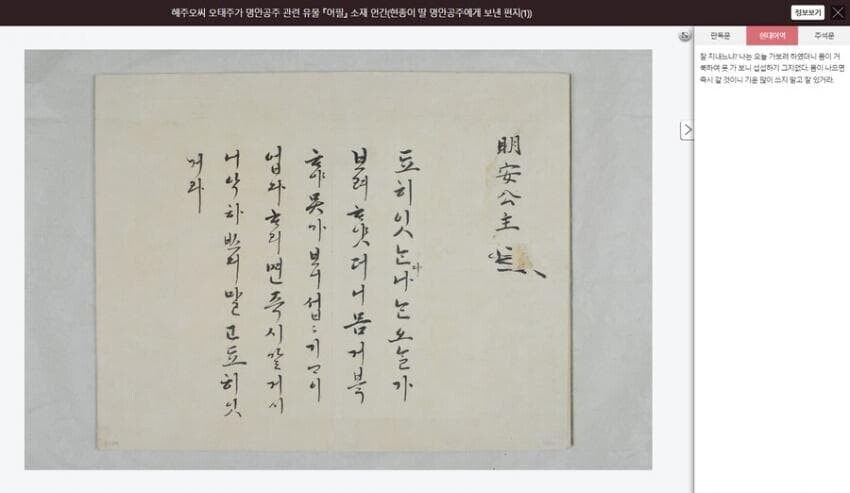 해주오씨 오태주가 명안공주 관련 유물 『어필』 소재 언간(현종이 딸 명안공주에게 보낸 편지(1))
정보보기
판독문
현대어역
주석문
잘 지내느냐? 나는 오늘 가보려 하였더니 몸이 거
북하여 못 가 보니 섭섭하기 그지없다. 몸이 나으면
즉시 갈 것이니 기운 많이 쓰지 말고 잘 있거라.
明安公主
됴히 잇ᄂᆞ냐 나는 오늘 가
보려 ᄒᆞ얏더니 몸 거북
ᄒᆞ야 못 가 보니 섭섭기
업와 ᄒᆞ리면 즉시 갈 게시
니 악하 ᄡᅳ디 말고 됴히 잇
거라